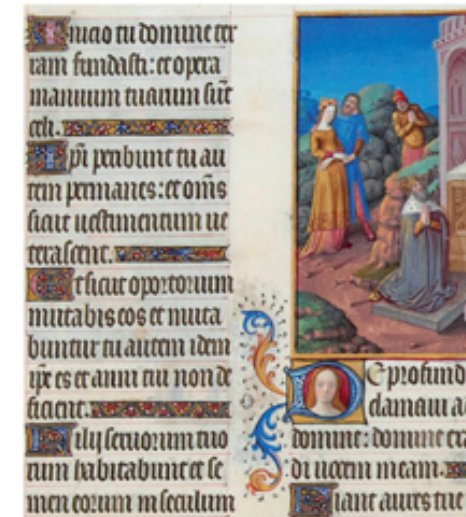 Inicio tu domine ter
ram fundasti: et opera
manuum tuarum sūt
celi.
Ipi peribunt tu au
tem permanes: et om̄s
sicut uestimentum ue
terascent.
Et sicut oportorium
mutabis eos et muta
buntur tu autem idem
ip̄e es et anni tui non de
ficient.
Filij seruorum tuo
rum habitabunt et se
men eorum in seculum
De profund
clamaui a
domine: domine exa
di uocem meam.
Fiant aures tue